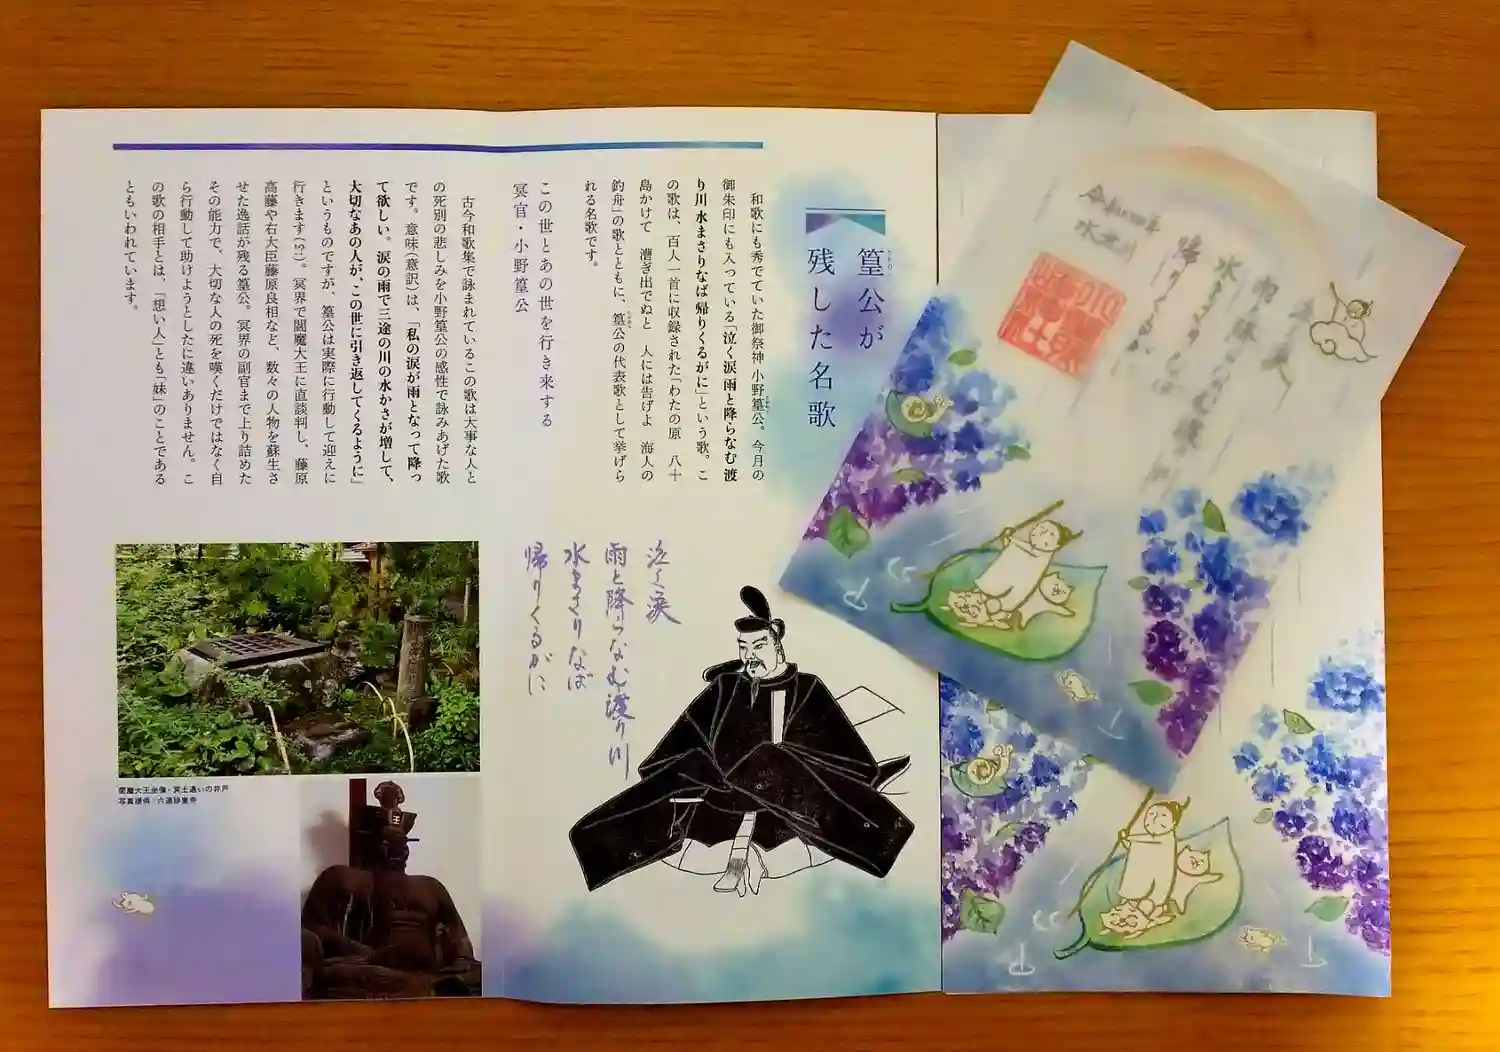 篁公が
残した名歌
和歌にも秀でていた御祭神 小野篁公。今月の
御朱印にも入っている「泣く涙 雨と降らなむ 渡
り川 水まさりなば 帰りくるがに」という歌。こ
の歌は、百人一首に収録された「わたの原 八十
島かけて 漕ぎ出でぬと 人には告げよ 海人の
釣舟」の歌とともに、篁公の代表歌として挙げら
れる名歌です。
この世とあの世を行き来する
冥官・小野篁公
古今和歌集で詠まれているこの歌は大事な人と
の死別の悲しみを小野篁公の感性で詠みあげた歌
です。意味(意訳)は、「私の涙が雨となって降っ
て欲しい。涙の雨で三途の川の水かさが増して、
大切なあの人が、この世に引き返してくるように」
というものですが、篁公は実際に行動して迎えに
行きます(!?)。冥界で閻魔大王に直談判し、藤原
高藤や右大臣藤原良相など、数々の人物を蘇生さ
せた逸話が残る篁公。冥界の副官まで上り詰めた
その能力で、大切な人の死を嘆くだけではなく自
ら行動して助けようとしたに違いありません。こ
の歌の相手とは、「想い人」とも「妹」のことである
ともいわれています。
泣く涙
雨と降らなむ渡り川
水まさりなば
帰りくるがに
閻魔大王坐像・冥土通いの井戸
写真提供:六道珍皇寺
王
泣く涙
雨と降らなむ渡り川
水まさりなば
帰りくるがに